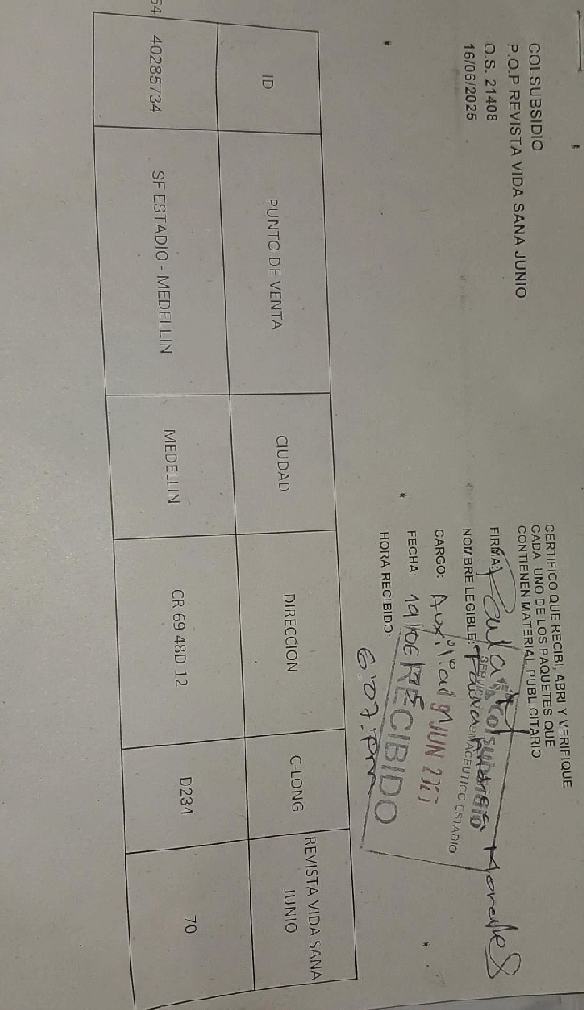 COLSUBSIDIO
P.O.P REVISTA VIDA SANA JUNIO
O.S. 21408
16/06/2025
CERTIFICO QUE RECIBI, ABRI Y VERIFIQUE
CADA UNO DE LOS PAQUETES QUE
CONTIENEN MATERIAL PUBLICITARIO
FIRMA: Paula
NOMBRE LEGIBLE: Morales
CARGO:
FECHA 19
JUN
RECIBIDO
HORA RECIBIDO: 6:07 pm
ID PUNTO DE VENTA CIUDAD DIRECCION C-LONG REVISTA VIDA SANA JUNIO
40285734 SF ESTADIO - MEDELLIN MEDELLIN CR 69 48D 12 D234 70